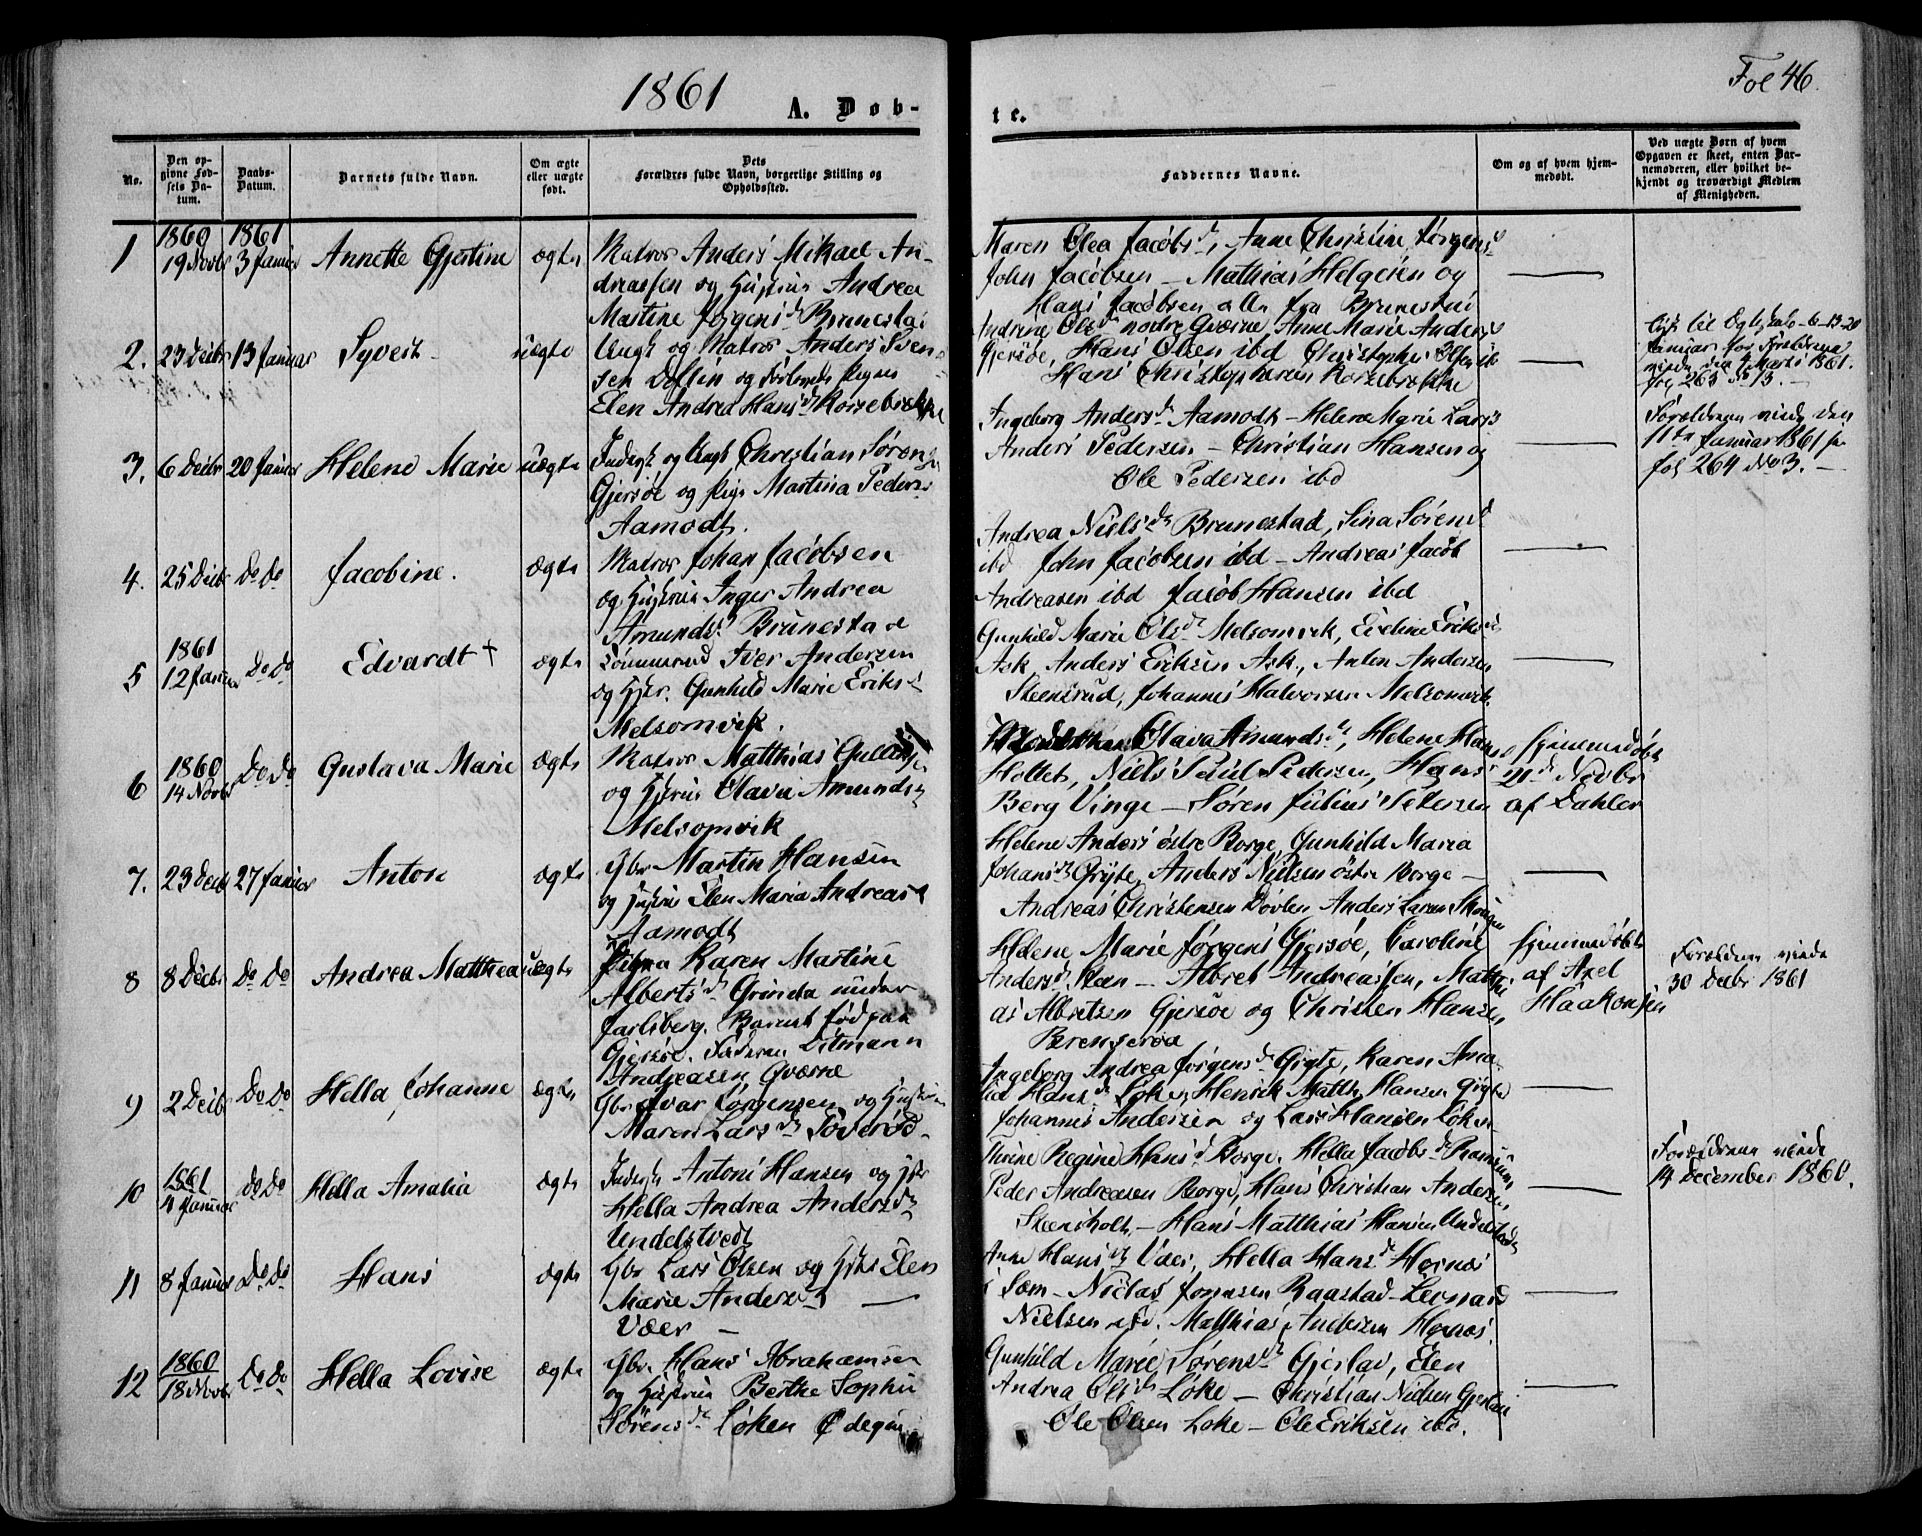 1861
A. Døb-
te.
Fol 46.
No.
Den op-
givne Fød-
sels Da-
tum.
Daabs-
Datum.
Barnets fulde Navn.
Om ægte
eller uægte
født.
Dets
Forældres fulde Navn, borgerlige Stilling og
Opholdssted.
Faddernes Navne.
Om og af hvem hjem-
medøbt.
Ved uægte Børn af hvem
Opgaven er skeet, enten Bar-
nemoderen, eller hvilket be-
kjendt og troværdigt Medlem
af Menigheden.
1
1860
19 Novbr
1861
3 Januar
Annette Gjertine
ægte
Matros Anders Mikael An-
dreassen og Hustru Andrea
Martine Jørgensd Brunestad
Maren Olea Jacobsd, Anne Christine Jørgensd
John Jacobsen - Mathias Helgesen og
Hans Jacobsen alle fra Brunestad
2.
23 Decbr
13 Januar
Syvert
uægte
Ungk og Matros Anders Sven-
sen Døflen og Pige
Elen Andrea Hansd Korsebrække
Andrine Olsd nodre Qværne, Anne Marie Andersd
Gjersøe, Hans Olsen ibd Christopher Olsen ib
Hans Christophersen Korsebrække
Januar for Forældrene
viede den Marts 1861.
fol 265 No 13.
3.
6 Decbr
20 Januar
Helene Marie
uægte
Inderst og Ungk Christian Sørensen
Gjersøe og Pige Martina Pedersd
Aamodt.
Ingeborg Andersd Aamodt - Helene Marie Larsd
Anders Pedersen - Christian Hansen og
Ole Pedersen ibd
Forældrene viede den
11te Januar 1861 se
fol 264 No 3.
4.
25 Decbr
Do Do
Jacobine.
ægte
Matros Johan Jacobsen
og Hustru Inger Andrea
Amundsd Brunestad
Andrea Nielsd Brunestad, Sina Sørensd
ibd John Jacobsen ibd - Andreas Jacob
Andreasen ibd Jacob Hansen ibd
5
1861
12 Januar
Do Do
Edvardt +
ægte
Iver Andersen
og Hstr. Gunhild Marie Eriksd
Melsomvik.
Gunhild Marie Olsd Melsomvik, Eveline Eriksd
Ask, Anders Eriksen Ask, Anton Andersen
Steensrud, Johannes Halvorsen Melsomvik.
6
1860
14 Novbr
Do Do
Gustava Marie
ægte
Matros Matthias Gulliksen
og Hstru Olava Amundsd
Melsomvik
Olava Amundsd, Helene Hansd
Holtet, Niels Paul Pedersen, Hans
Berg Vinge - Søren Julius Petersen
hjemmedøbt
21d Novbr
af Dahler
7.
23 Decb
27 Januar
Anton
ægte
Gbr Martin Hansen
og Hustru Elen Maria Andreasd
Aamodt
Helene Anders østre Borge, Gunhild Maria
Johansd Gryte, Anders Nielsen østre Borge -
Andreas Christensen Døvlen Anders Larsen Skougen
8
8 Decbr
Do Do
Andrea Matthea
uægte
Pigen Karen Martine
Albertsd Grinda under
Jarlsberg. Barnet født paa
Gjersøe. Faderen Ditmann
Andreasen Qværne
Helene Marie Jørgensd Gjersøe, Caroline
Andersd Steen - Albret Andreassen, Matthi-
as Albretsen Gjersøe og Christen Hansen
Brengserøa
hjemmedøbt
af Axel
Haakonsen
Forældrene viede
30 decbr 1861
9
2 Decbr
Do Do
Hella Johanne
ægte
Gbr Ivar Jørgensen og Hustru
Maren Larsd Toverød
Ingeborg Andrea Jørgensd Gryte, Karen Ama-
lia Hansd Løke, Henrik Matth. Hansen Gryte
Johannes Andersen og Lars Hansen Løke
10
1861
4 Januar
Do Do
Hella Amalia
ægte
Inderst Antoni Hansen og Hstr
Hella Andrea Andersd
Undelstvedt
Thrine Regine Hansd Borge. Hella Jacobsd Ramsum
Peder Andreasen Borge, Hans Christian Andersen
Steensholt, - Hans Matthias Hansen Undelstvedt
Forældrene viede
14 december 1860.
11
8 Januar
Do Do
Hans
ægte
Gbr Lars Olsen og Hstr Elen
Marie Andersd
Vaer -
Anne Hansd Vaer, Hella Hansd Hognæs
i Sæm - Niclas Jonasen Raastad - Lernard
Nielsen ibd. Matthias Andersen Hognæs.
12
1860
18 Novbr
Do Do
Hella Lovise
ægte
Gbr. Hans Abrahamsen
og Hustru Berthe Sophie
Sørensd Løken Ødegrd
Gunhild Marie Sørensd Gjerstad, Elen
Andrea Olsd Løke - Christian Nielsen Gjerstad
Ole Olsen Løke - Ole Eriksen ibd.